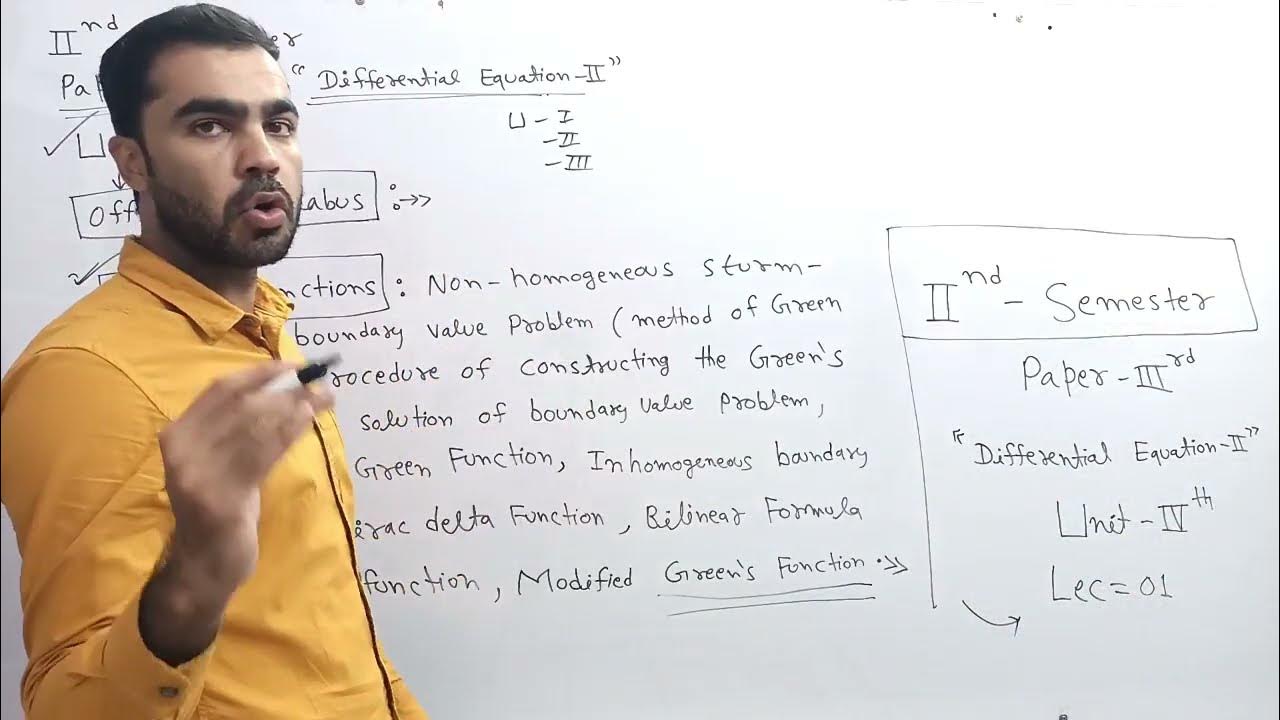 IInd
"Differential Equation-II"
U - I
- II
- III
:→>
: Non-homogeneous Sturm-
boundary value Problem (method of Green
rocedure of constructing the Green's
solution of boundary value Problem,
Green Function, Inhomogeneous boundary
irac delta Function, Bilinear Formula
function, Modified Green's Function.>>
IInd - Semester
Paper - IIIrd
"Differential Equation-II"
Unit - IVth
Lec = 01